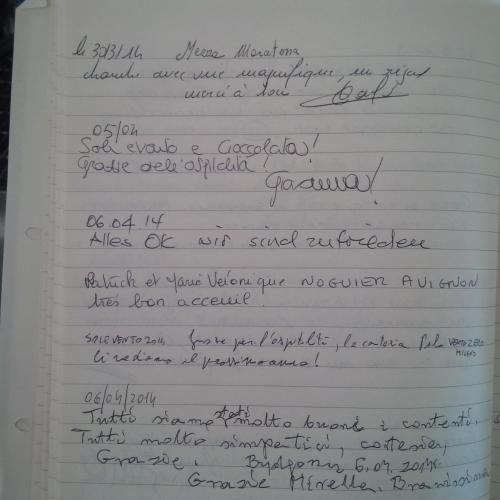 le 30/3/14 Mezza Maratona
chambre avec vue magnifique, un séjour
merci à tous
05/04
Sole vento e Cioccolata!
Grazie dell'ospitalità!
06.04.14
Alles OK wir sind zufrieden
Patrick et Marie Véronique NOGUIER AVIGNON
très bon acceuil.
SOLEVENTO 2014 Grazie per l'ospitalità, la cortesia
Ci vediamo il prossimo anno!
06/04/2014
Tutti siamo stati molto buoni i contenti.
Tutti molto simpatici, cortesie,
Grazie. Bydgoszcz 6.04.2014r.
Grazie Mirella,